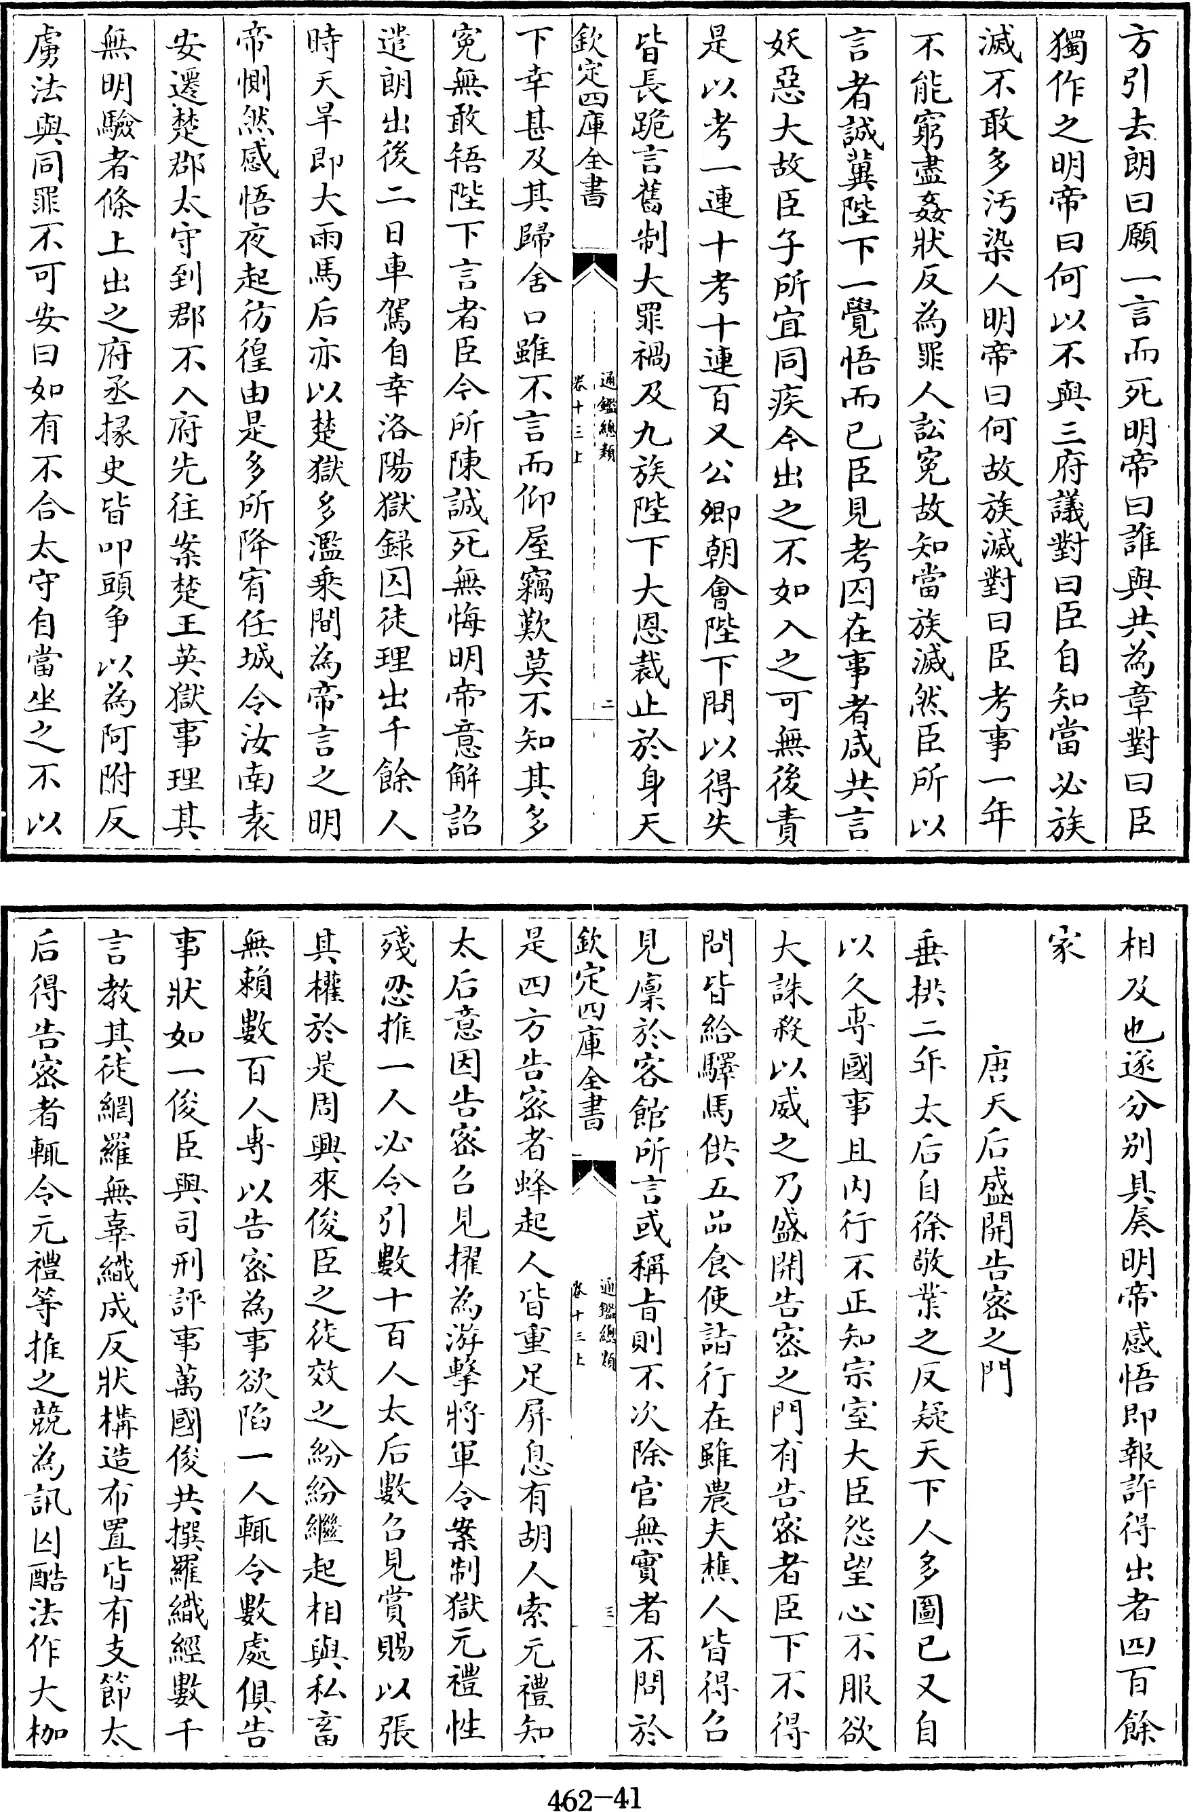 方引去朗曰願一言而死明帝曰誰與共為章對曰臣
獨作之明帝曰何以不與三府議對曰臣自知當必族
滅不敢多汚染人明帝曰何故族滅對曰臣考事一年
不能窮盡姦狀反為罪人訟寃故知當族滅然臣所以
言者誠冀陛下一覺悟而已臣見考囚在事者咸共言
妖惡大故臣子所宜同疾今出之不如入之可無後責
是以考一連十考十連百又公卿朝會陛下問以得失
皆長跪言舊制大罪禍及九族陛下大恩裁止於身天
欽定四庫全書
通鑑總類
卷十三上
二
下幸甚及其歸舍口雖不言而仰屋竊歎莫不知其多
寃無敢牾陛下言者臣今所陳誠死無悔明帝意解詔
遣朗出後二日車駕自幸洛陽獄録囚徒理出千餘人
時天旱即大雨馬后亦以楚獄多濫乘間為帝言之明
帝惻然感悟夜起彷徨由是多所降宥任城令汝南袁
安遷楚郡太守到郡不入府先往案楚王英獄事理其
無明驗者條上出之府丞掾史皆叩頭争以為阿附反
虜法與同罪不可安曰如有不合太守自當坐之不以
相及也遂分别具奏明帝感悟即報許得出者四百餘
家
唐天后盛開告密之門
垂拱二年太后自徐敬業之反疑天下人多圖已又自
以久專國事且内行不正知宗室大臣怨望心不服欲
大誅殺以威之乃盛開告密之門有告密者臣下不得
問皆給驛馬供五品食使詣行在雖農夫樵人皆得召
見廩於客館所言或稱旨則不次除官無實者不問於
欽定四庫全書
通鑑總類
卷十三上
三
是四方告密者蜂起人皆重足屏息有胡人索元禮知
太后意因告密召見擢為游擊將軍令案制獄元禮性
殘忍推一人必令引數十百人太后數召見賞賜以張
其權於是周興來俊臣之徒效之紛紛繼起相與私畜
無賴數百人専以告密為事欲陷一人輒令數處俱告
事狀如一俊臣與司刑評事萬國俊共撰羅織經數千
言教其徒網羅無辜織成反狀構造布置皆有支節太
后得告密者輒令元禮等推之競為訊囚酷法作大枷
462-41